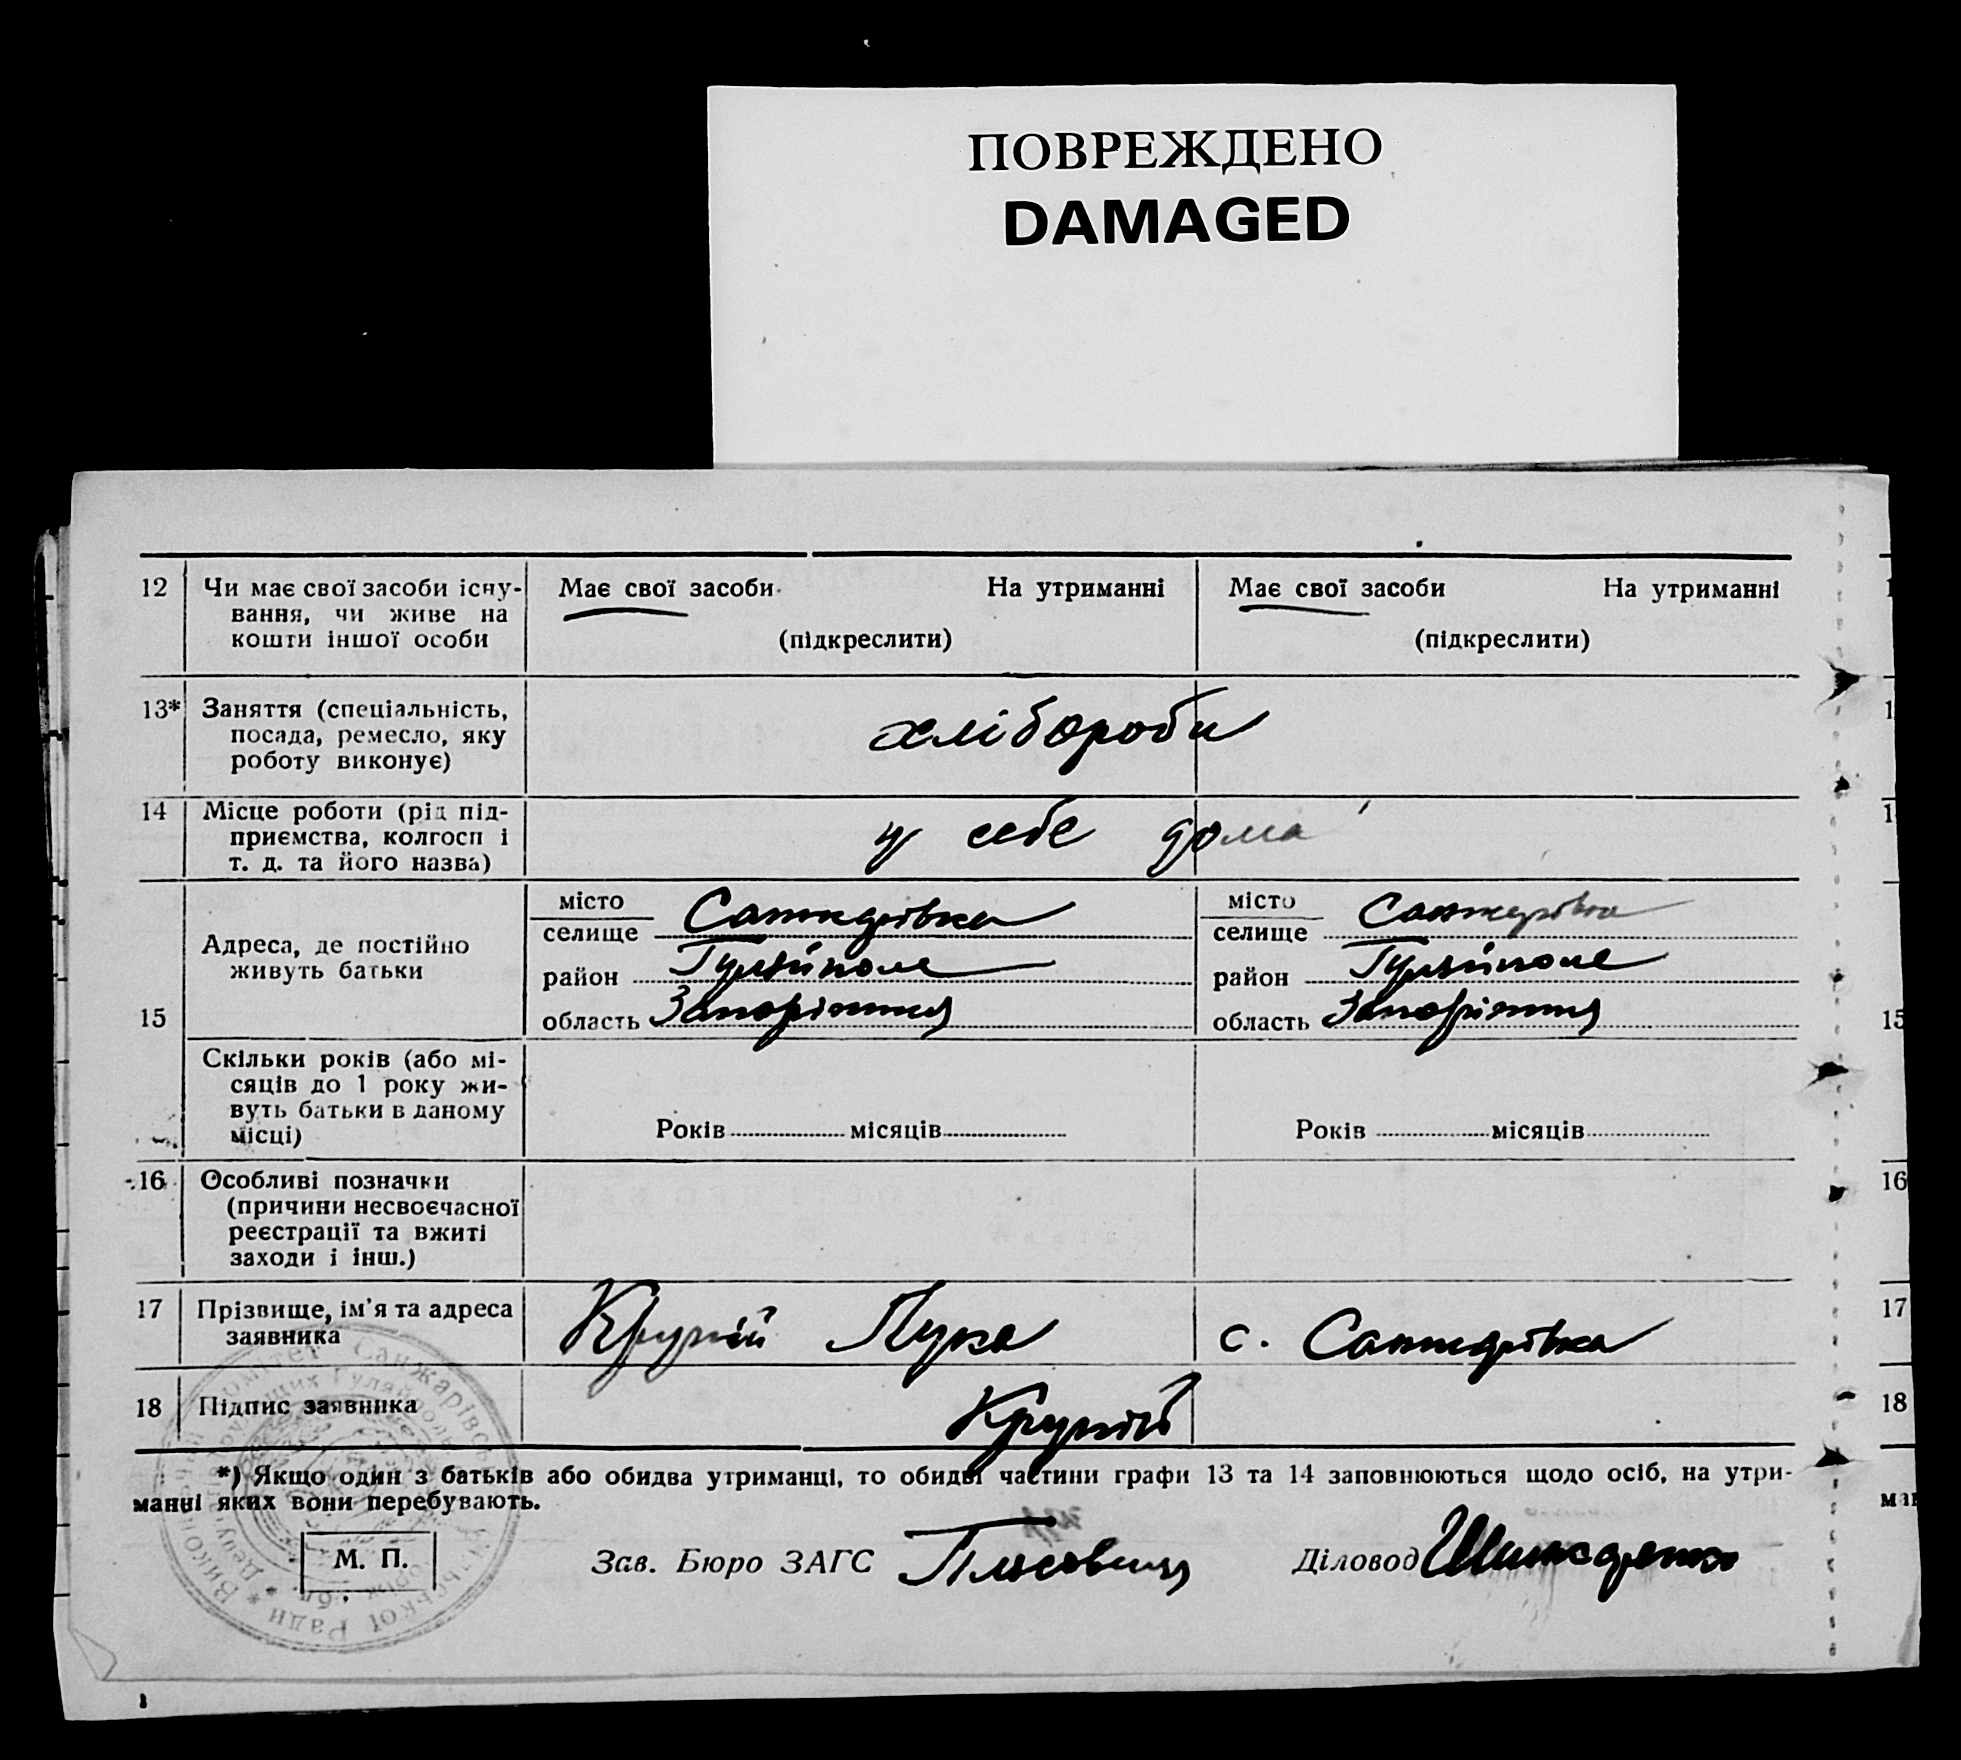 ПОВРЕЖДЕНО
DAMAGED
12 Чи має свої засоби існу-
вання, чи живе на
кошти іншої особи
Має свої засоби На утриманні
(підкреслити)
Має свої засоби На утриманні
(підкреслити)
13* Заняття (спеціальність,
посада, ремесло, яку
роботу виконує)
хлібороби
14 Місце роботи (рід під-
приємства, колгосп і
т. д. та його назва)
у себе дома
15
Адреса, де постійно
живуть батьки
місто
селище Санжарівка
район Гуляйполе
область Запоріжжя
місто
селище Санжарівка
район Гуляйполе
область Запоріжжя
Скільки років (або мі-
сяців до 1 року жи-
вуть батьки в даному
місці)
Років місяців
Років місяців
16 Особливі позначки
(причини несвоєчасної
реєстрації та вжиті
заходи і інш.)
17 Прізвище, ім'я та адреса
заявника
Крупій Лука с. Санжарівка
18 Підпис заявника
Крупій
*) Якщо один з батьків або обидва утриманці, то обидві частини графи 13 та 14 заповнюються щодо осіб, на утри-
манні яких вони перебувають.
М. П.
Зав. Бюро ЗАГС
Діловод
15
16
17
18